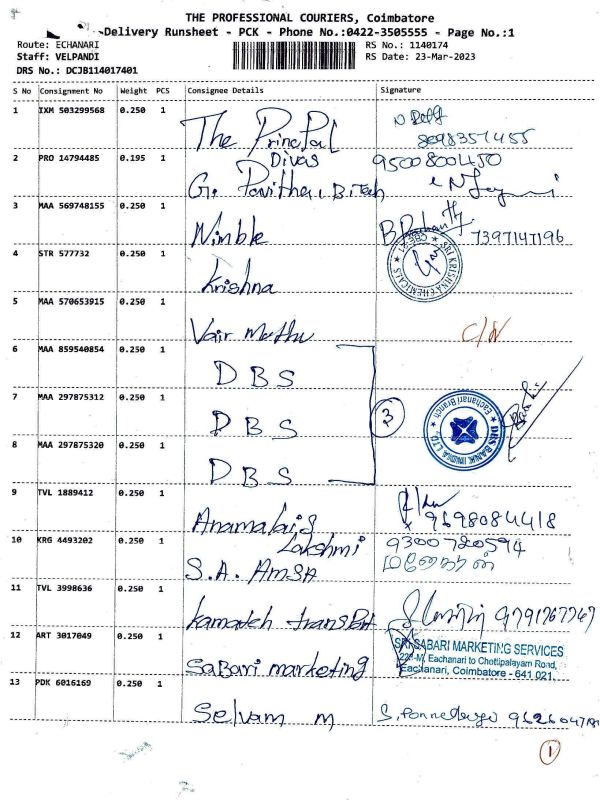 THE PROFESSIONAL COURIERS, Coimbatore
Delivery Runsheet - PCK - Phone No.:0422-3505555 - Page No.:1
Route: ECHANARI RS No.: 1140174
Staff: VELPANDI RS Date: 23-Mar-2023
DRS No.: DCJB114017401
S No Consignment No Weight PCS Consignee Details Signature
1 IXM 503299568 0.250 1 The Principal 8098351455
2 PRO 14794485 0.195 1 Divas 9500800450
G. Pavitha, B.Tech
3 MAA 569748155 0.250 1 Nimble 7397147196
4 STR 577732 0.250 1 Krishna SRI KRISHNA CHEMICALS CBE-21
5 MAA 570653915 0.250 1 Vair Muthu C/N
6 MAA 859540854 0.250 1 DBS
7 MAA 297875312 0.250 1 DBS 3 DBS BANK INDIA LTD Eachanari Branch
8 MAA 297875320 0.250 1 DBS
9 TVL 1889412 0.250 1 Anamalais 9698084418
10 KRG 4493202 0.250 1 Lakshmi 9300720594
S.A. AMSA
11 TVL 3998636 0.250 1 Kamatch transport 9791767767
12 ART 3017049 0.250 1 Sabari marketing SRI SABARI MARKETING SERVICES
Eachanari to Chettipalayam Road,
Eachanari, Coimbatore - 641 021.
13 PDK 6016169 0.250 1 Selvam M
1